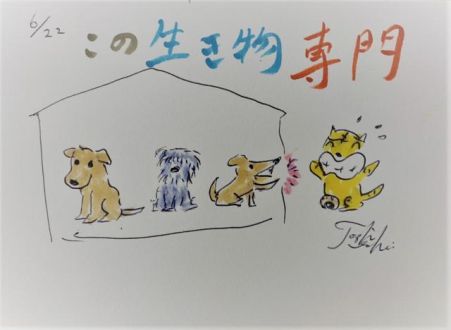 6/22
この生き物専門